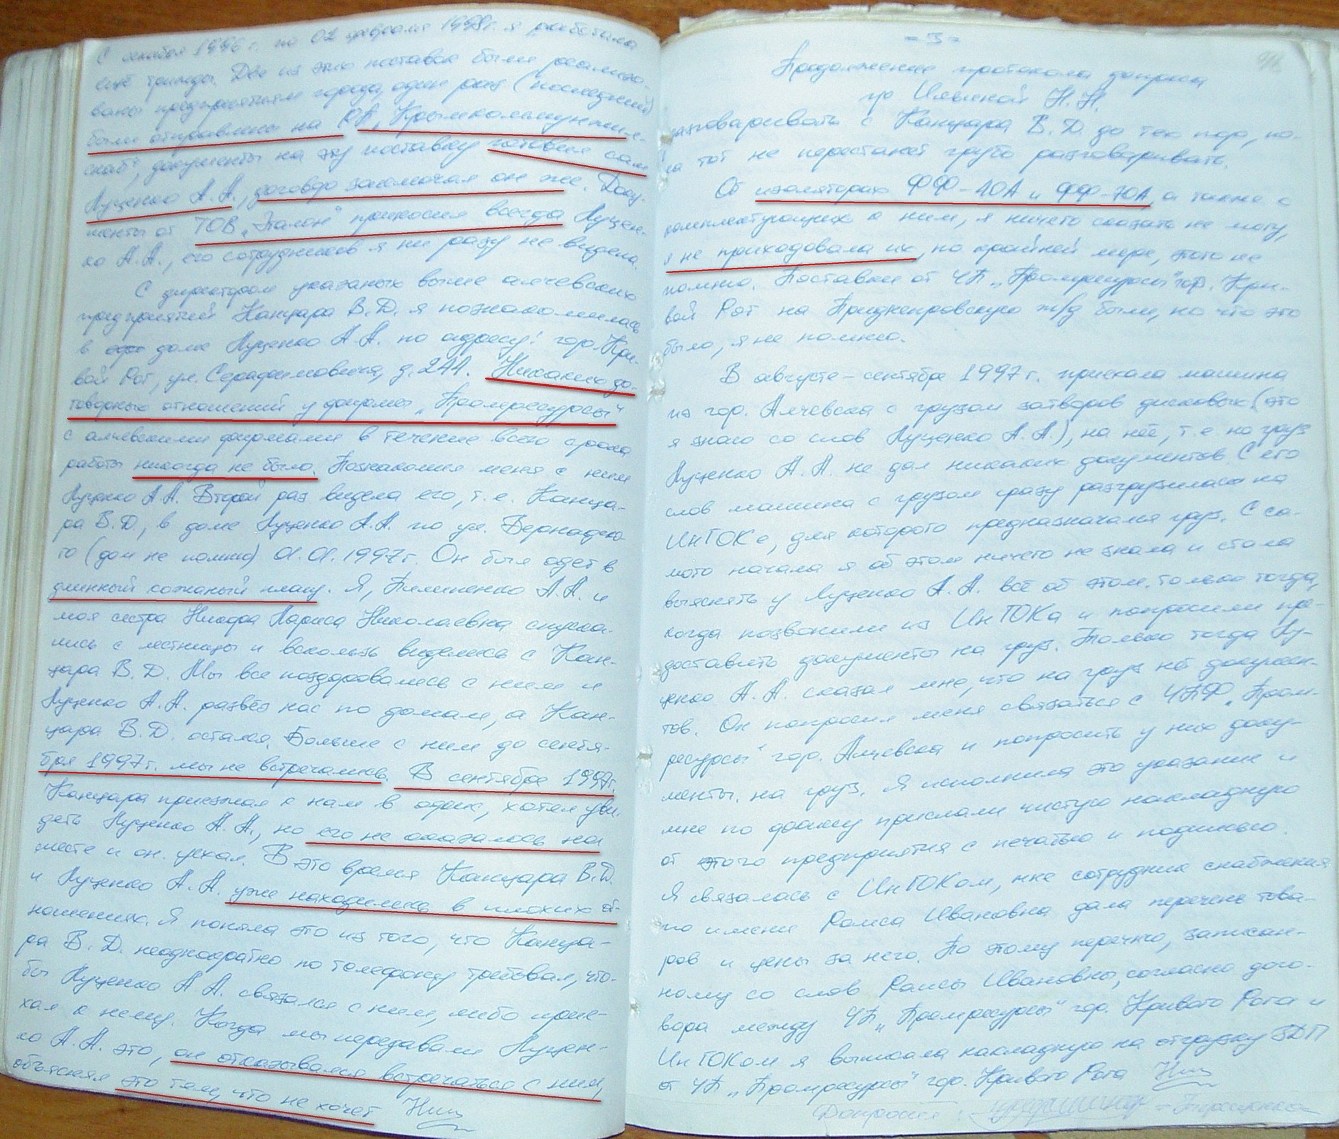 С октября 1996 г. по 02 февраля 1998 г. я работала
ещё трижды. Две из этих поставок были реализо-
ваны предприятиям города, один раз (последний)
были отправлены на ЮГ, Крымкоммунтеп-
снаб", документы на эту поставку готовил сам
Луценко А.А., договор заключал он же. Доку-
менты от ТОВ „ " приносил всегда Луцен-
ко А.А., его сотрудников я ни разу не видела.
С директором указаных выше алчевских
предприятий Канцара В.Д. я познакомилась
в доме Луценко А.А. по адресу: гор. Кри-
вой Рог, ул. Серафимовича, д. 244. Никаких до-
говорных отношений у фирмы „Промресурсы"
с алчевскими фирмами в течение всего срока
работы никогда не было. Познакомил меня с ним
Луценко А.А. Второй раз видела его, т.е. Канца-
ра В.Д., в доме Луценко А.А. по ул. Бернардо-
го (дом не помню) 01.01.1997г. Он был одет в
длинный кожаный плащ. Я, А.А. и
моя сестра Лариса Николаевна спуска-
лись с лестницы и вскользь виделись с Кан-
цара В.Д. Мы все поздоровались с ним и
Луценко А.А. развёз нас по домам, а Кан-
цара В.Д. остался. Больше с ним до сентя-
бря 1997г. мы не встречались. В сентябре 1997г.
Канцара приезжал к нам в офис, хотел уви-
деть Луценко А.А., но его не оказалось на
месте и он уехал. В это время Канцара В.Д.
и Луценко А.А. уже находились в плохих от-
ношениях. Я поняла это из того, что Канца-
ра В.Д. неоднократно по телефону требовал, что-
бы Луценко А.А. связался с ним, либо прие-
хал к нему. Когда мы передавали Луцен-
ко А.А. это, он отказывался встречаться с ним,
объясняя это тем, что не хочет
- 3 -
Продолжение протокола допроса
гр. Н.Н.
разговаривать с Канцара В.Д. до тех пор, по-
ка тот не перестанет грубо разговаривать.
Об изоляторах ФФ-40А и ФФ-70А, а также о
комплектующих к ним, я ничего сказать не могу,
я не приходовала их, по крайней мере, этого не
помню. Поставки от ЧП „Промресурсы" гор. Кри-
вой Рог на Приднепровскую ж/д были, но что это
было, я не помню.
В августе-сентябре 1997г. приехала машина
из гор. Алчевска с грузом затворов дисковых (это
я знаю со слов Луценко А.А.), на неё, т.е. на груз
Луценко А.А. не дал никаких документов. С его
слов машина с грузом сразу разгрузилась на
ИнГОКе, для которого предназначался груз. С са-
мого начала я об этом ничего не знала и стала
выяснять у Луценко А.А. всё об этом только тогда,
когда позвонили из ИнГОКа и попросили пре-
доставить документы на груз. Только тогда Лу-
ценко А.А. сказал мне, что на груз нет докумен-
тов. Он попросил меня связаться с ЧПФ „Пром-
ресурсы" гор. Алчевска и попросить у них доку-
менты на груз. Я исполнила это указание и
мне по факсу прислали чистую накладную
от этого предприятия с печатью и подписью.
Я связалась с ИнГОКом, мне сотрудник снабжения
по имени Раиса Ивановна дала перечень това-
ров и цены за него. По этому перечню, записан-
ному со слов Раисы Ивановны, согласно дого-
вора между ЧП „Промресурсы" гор. Кривого Рога и
ИнГОКом я выписала накладную на отгрузку ЗДП
от ЧП „Промресурсы" гор. Кривого Рога
Допросил: